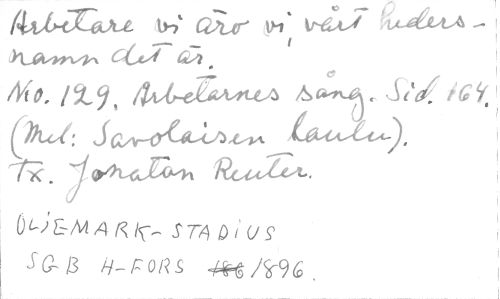 Arbetare vi äro vi, vårt heders-
namn det är.
No. 129. Arbetarnes sång. Sid. 164.
(Mel: Savolaisen laulu).
Tx. Jonatan Reuter.
OLIEMARK-STADIUS
SGB H-FORS 186 1896.